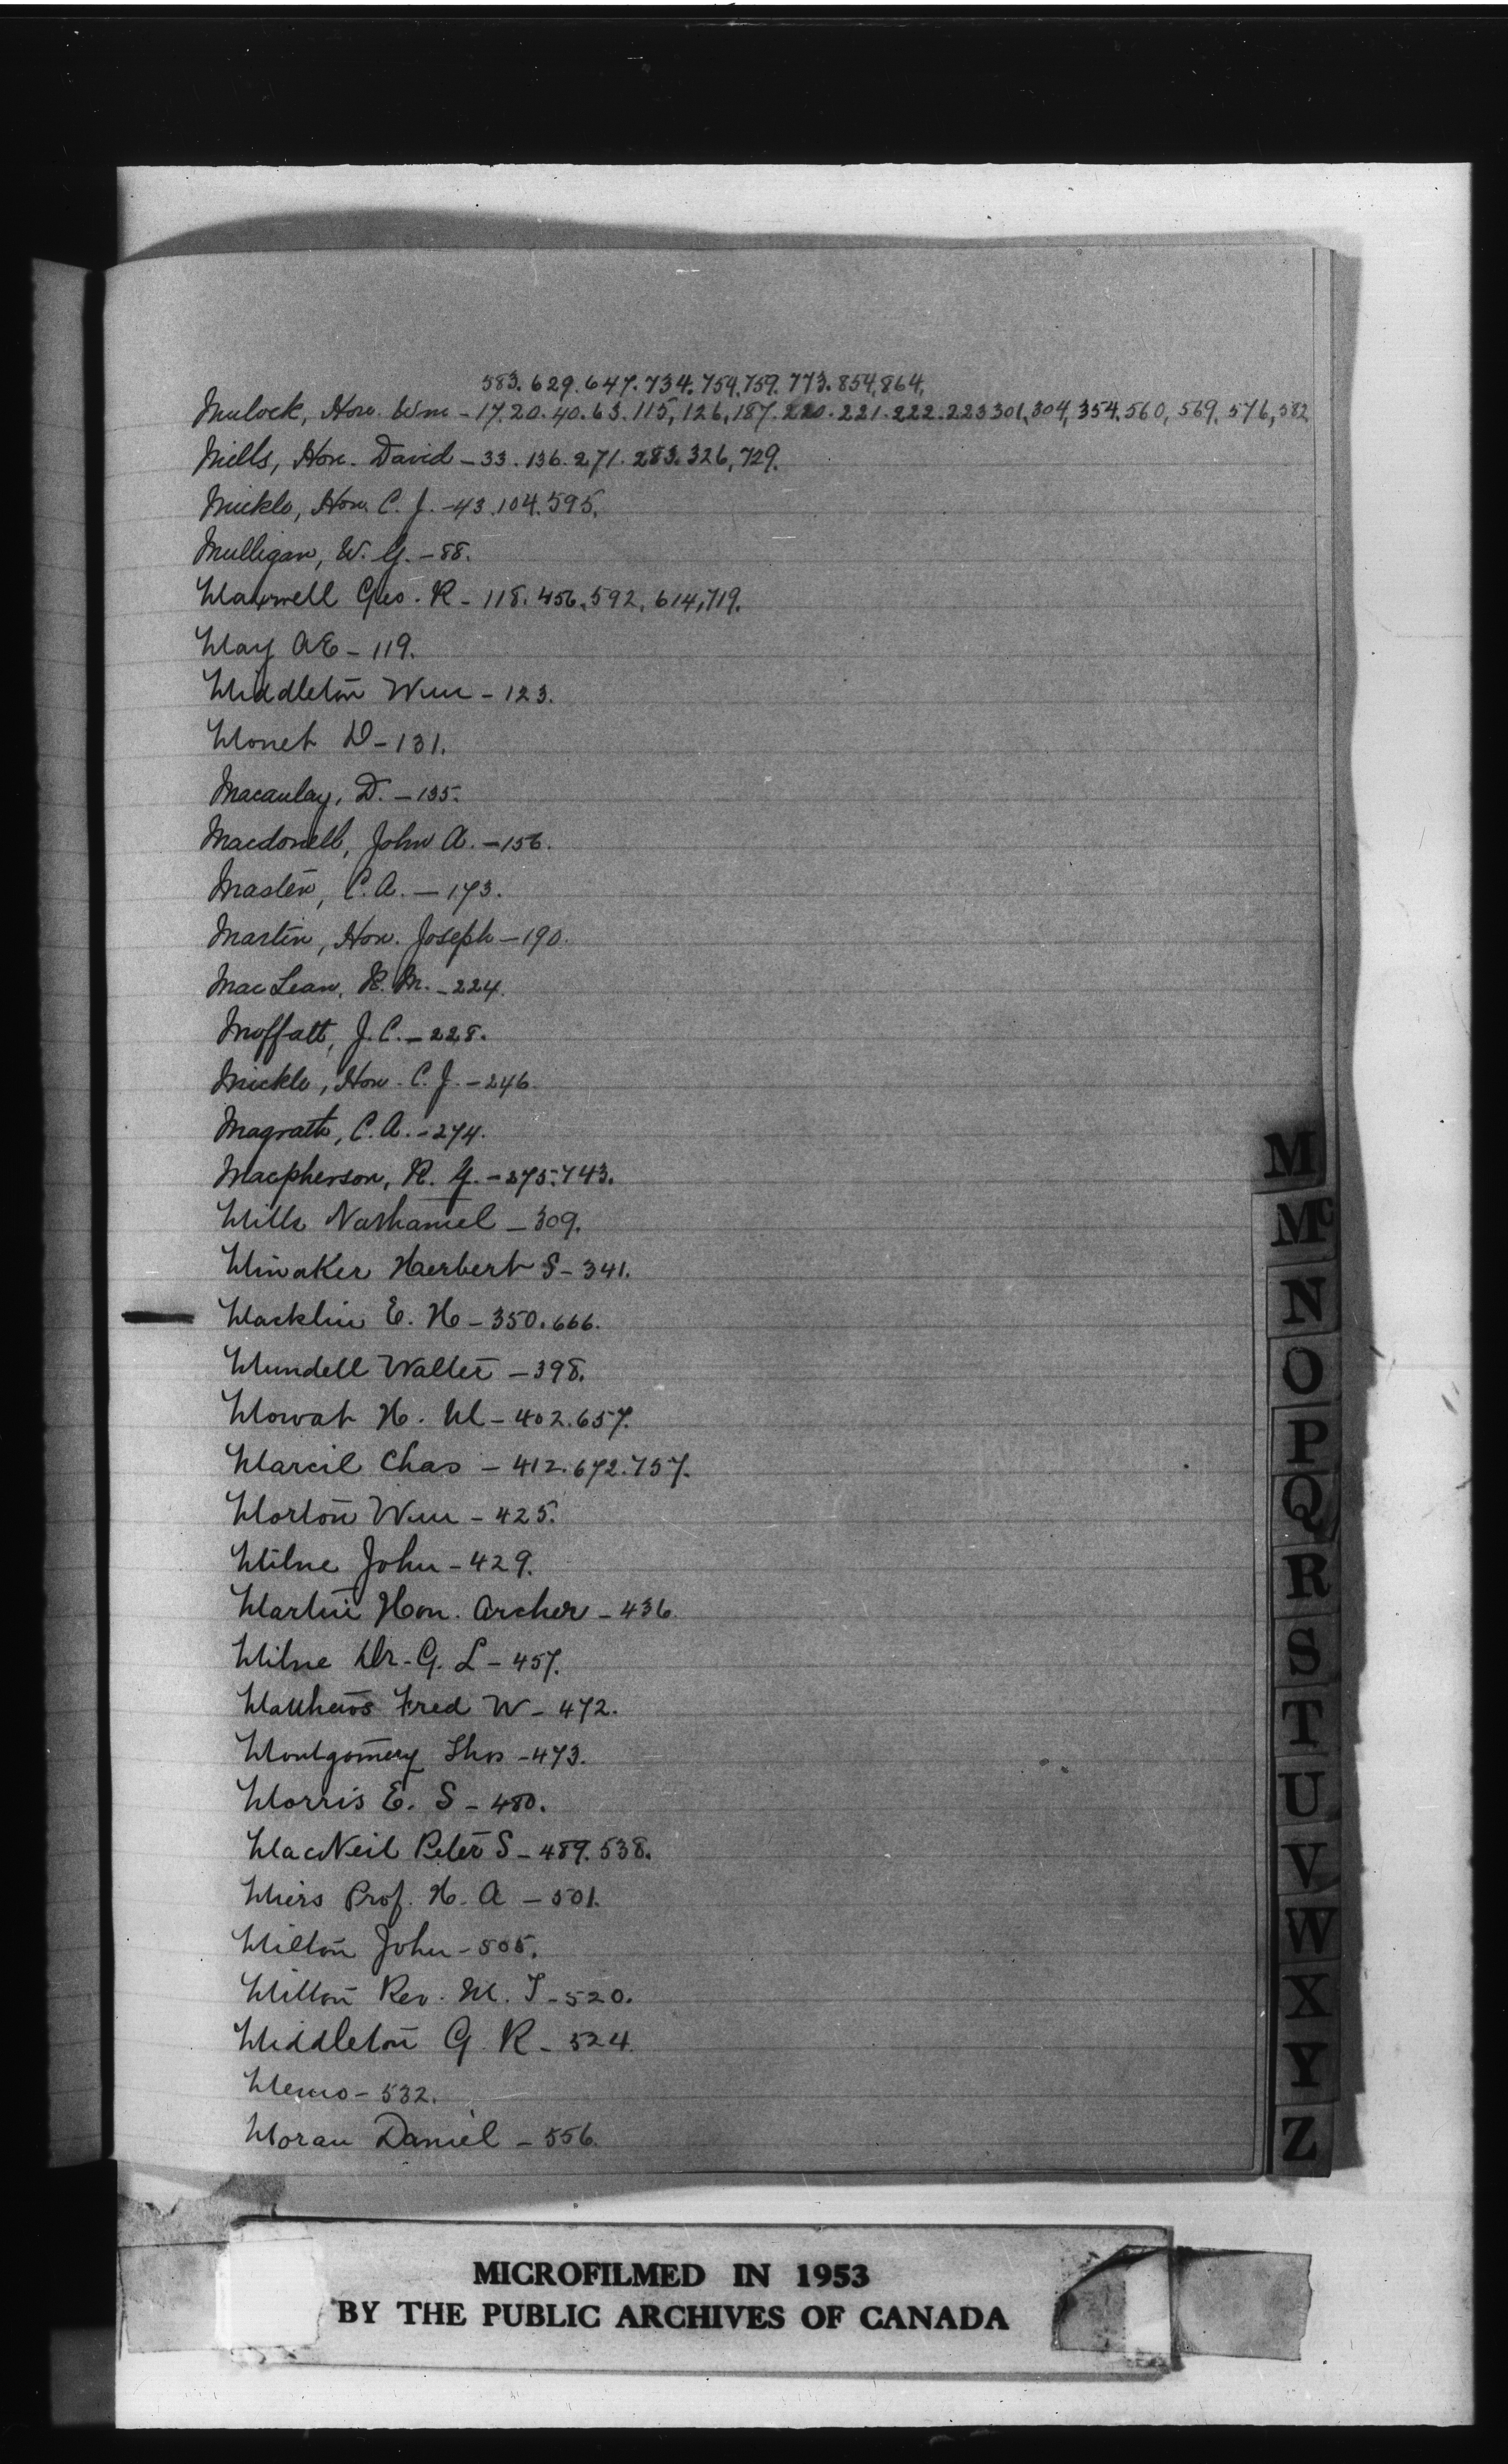 583. 629. 647. 734. 754, 759. 773. 854, 864,
Mulock, Hon. Wm - 17. 20. 40. 63. 115, 126, 187. 220. 221. 222. 223 301, 304, 354. 560, 569. 576, 582
Mills, Hon. David - 33. 136. 271. 283. 326, 729.
Mickle, Hon. C. J. - 43. 104. 595.
Mulligan, W. G. - 88.
Maxwell Geo. R - 118. 456. 592, 614, 719.
May A E - 119.
Middleton Wm - 123.
Monet D - 131.
Macaulay, D. - 135.
Macdonell, John A. - 156.
Masten, C. A. - 173.
Martin, Hon. Joseph - 190.
MacLean, H. M. - 224.
Moffatt, J. C. - 228.
Mickle, Hon. C. J. - 246.
Magrath, C. A. - 274.
Macpherson, R. G. - 275. 743.
Mills Nathaniel - 309.
Minaker Herbert S - 341.
Macklin E. H - 350. 666.
Mundell Walter - 398.
Mowat H. M - 402. 657.
Marcil Chas - 412. 672. 757.
Morton Wm - 425.
Milne John - 429.
Martin Hon. Archer - 436.
Milne Dr. G. L - 457.
Matthews Fred W - 472.
Montgomery Thos - 473.
Morris E. S - 480.
MacNeil Peter S - 489. 538.
Miers Prof. H. A - 501.
Milton John - 505.
Milton Rev. M. T - 520.
Middleton G. R - 524.
Memo - 532.
Moran Daniel - 556.
M
Mc
N
O
P
Q
R
S
T
U
V
W
X
Y
Z
MICROFILMED IN 1953
BY THE PUBLIC ARCHIVES OF CANADA